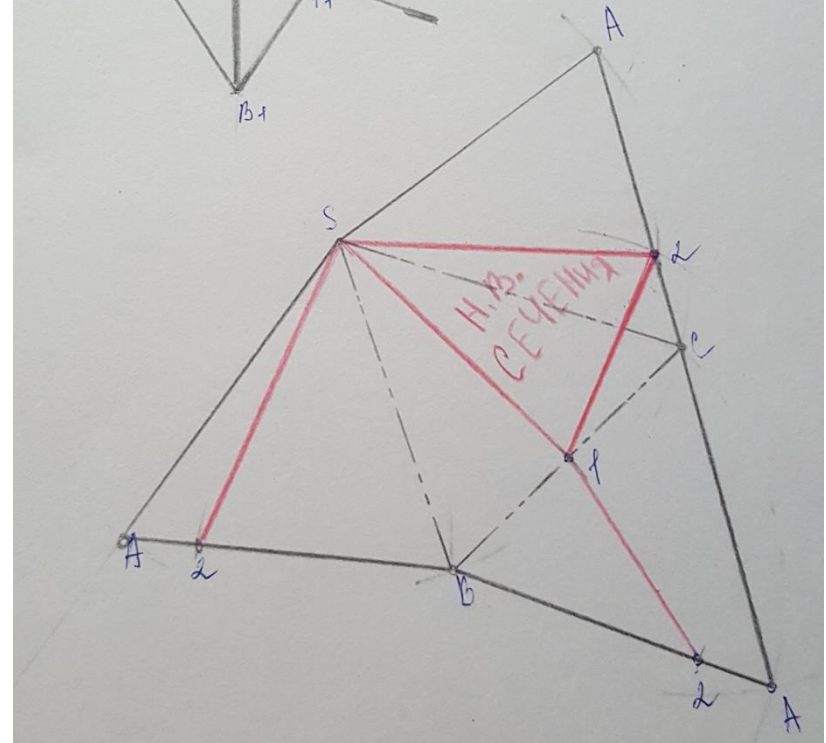 B1
A
S
2
Н.В.
СЕЧЕНИЯ
C
1
A
2
B
2
A